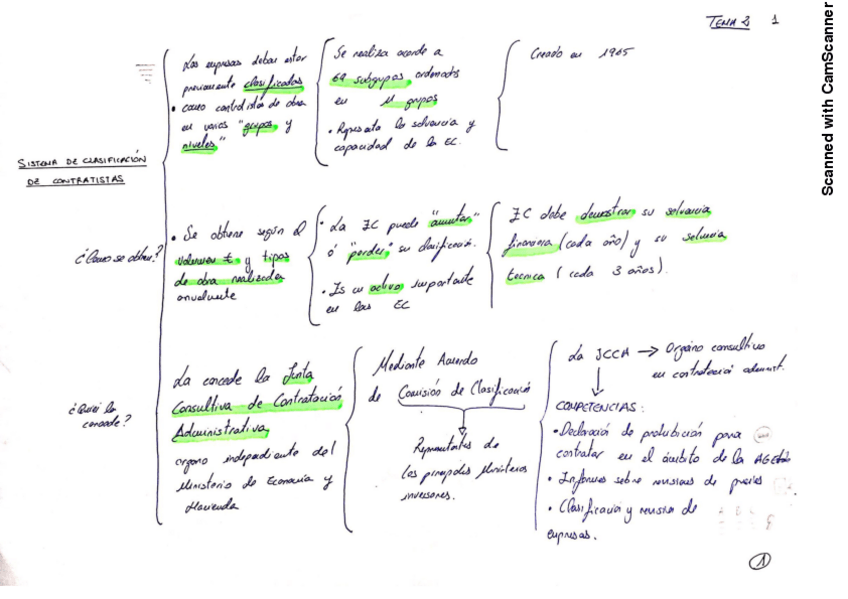 TEMA 2 1
Scanned with CamScanner
SISTEMA DE CLASIFICACIÓN
DE CONTRATISTAS
Las empresas deben estar
previamente clasificadas
• como contratistas de obra
en varios "grupos y
niveles"
Se realiza acorde a
69 subgrupos ordenados
en 11 grupos
• Representa la solvencia y
capacidad de la EC.
Creado en 1965
¿Cómo se obtiene?
• Se obtiene según el
volumen € y tipos
de obra realizados
anualmente
• La EC puede "aumentar"
ó "perder" su clasificación.
• Es un activo importante
en las EC
EC debe demostrar su solvencia
financiera (cada año) y su solvencia
tecnica (cada 3 años).
¿Quién la
concede?
La concede la Junta
Consultiva de Contratación
Administrativa,
organo independiente del
Ministerio de Economía y
Hacienda
Mediante Acuerdo
de Comisión de Clasificación
Representantes de
los principales Ministerios
inversores.
La JCCA → Organo consultivo
en contratación administ.
COMPETENCIAS:
• Declaración de prohibición para
contratar en el ámbito de la
• Informes sobre revisiones de precios
• Clasificación y revisión de
empresas.
1